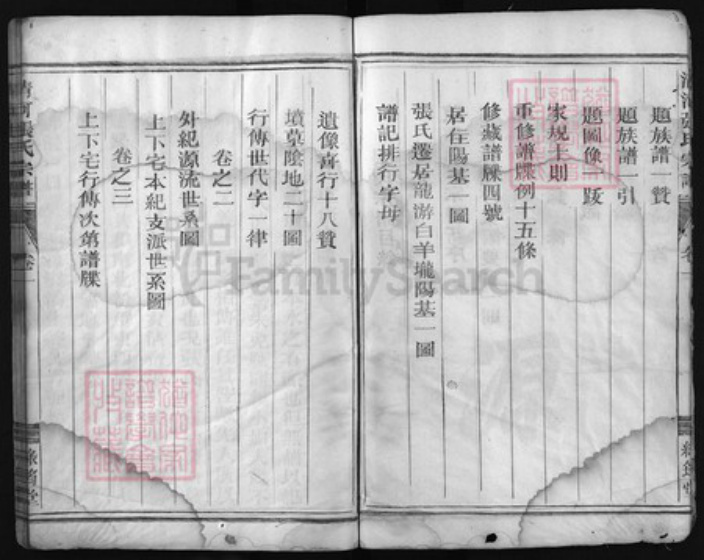 題族譜一贊
題族譜一引
題圖像一跋
家規十則
重修譜牒例十五條
修藏譜牒四號
居住陽基一圖
張氏遷居龍游白羊壠陽基一圖
譜記排行字母
遺像奇行十八贊
墳墓陰地二十圖
行傳世代字一律
卷之二
外紀源流世系圖
上下宅本紀支派世系圖
卷之三
上下宅行傳次第譜牒
清河張氏宗譜
卷一
FamilySearch